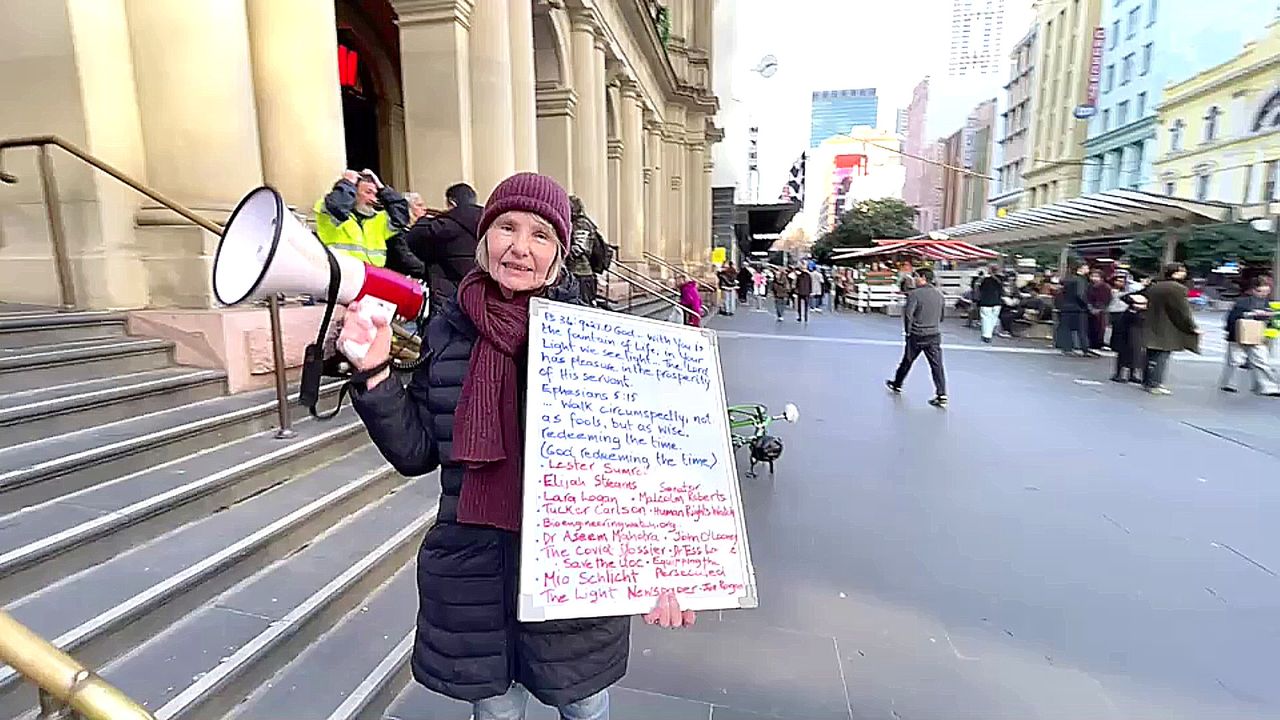 Ps 36: 9 O God.. with You is
the fountain of Life: in Your
Light we see light. The Lord
has pleasure in the prosperity
of His servant.
Ephesians 5:15
... Walk circumspectly, not
as fools, but as wise,
redeeming the time.
(God, redeeming the time)
· Lester
· Elijah Streams Senator
· Lara Logan · Malcolm Roberts
· Tucker Carlson · Human Rights Watch
· Bioengineeringwatch.org
· Dr Aseem Mahotra · John O'Looney
· The Covid Dossier · Dr Ess
· Save the Uoc · Equipping the
· Mia Schlicht Persecuted
· The Light Newspaper · Joe Rogan